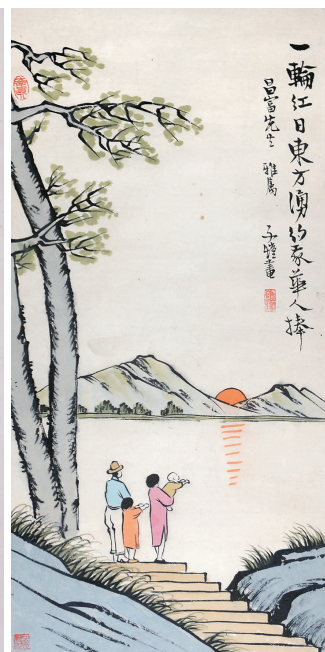 一輪紅日東方湧約衆華人捧
昌富先生 雅屬
子愷畫